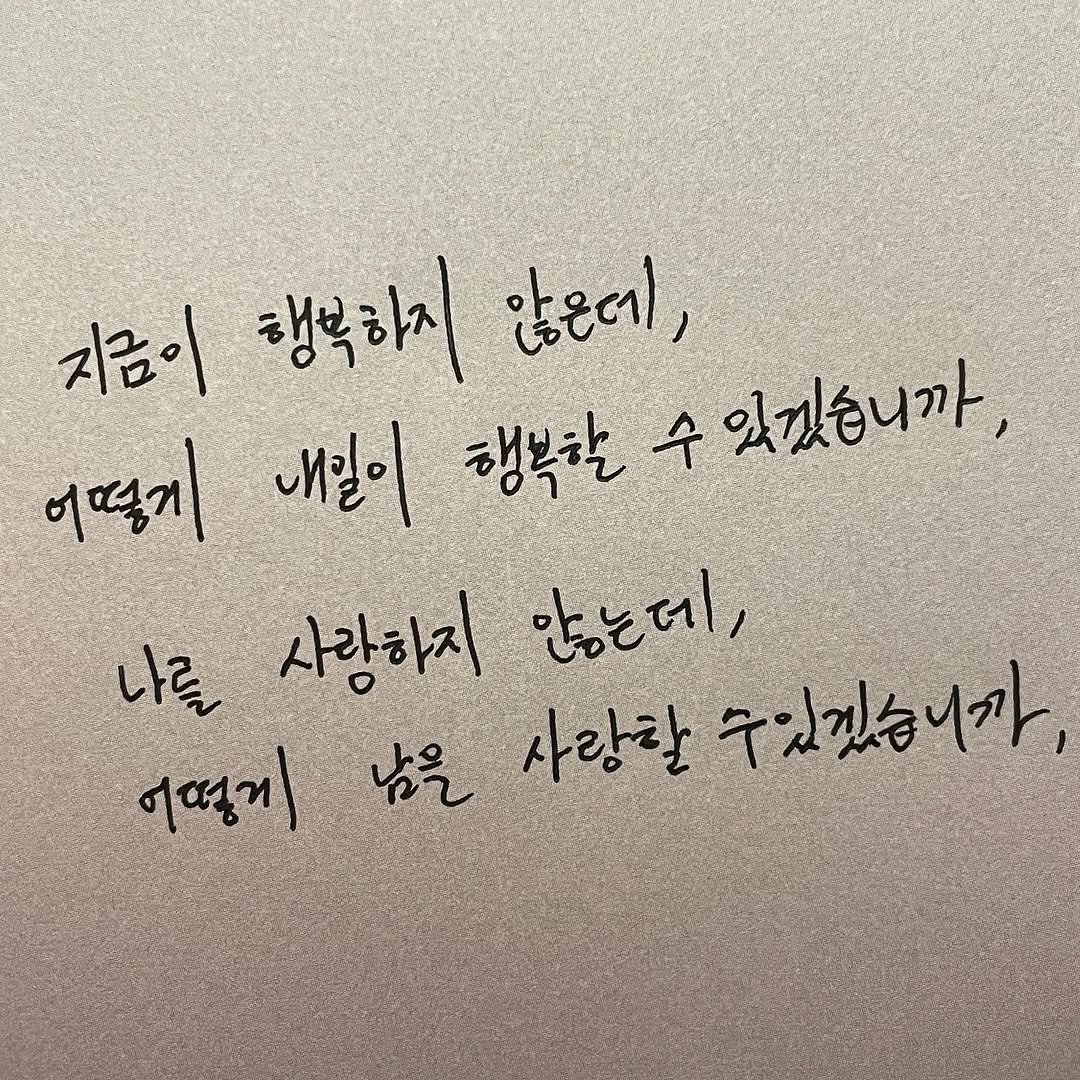 지금이 행복하지 않은데,
어떻게 내일이 행복할 수 있겠습니까,
나를 사랑하지 않는데,
어떻게 남을 사랑할 수 있겠습니까,